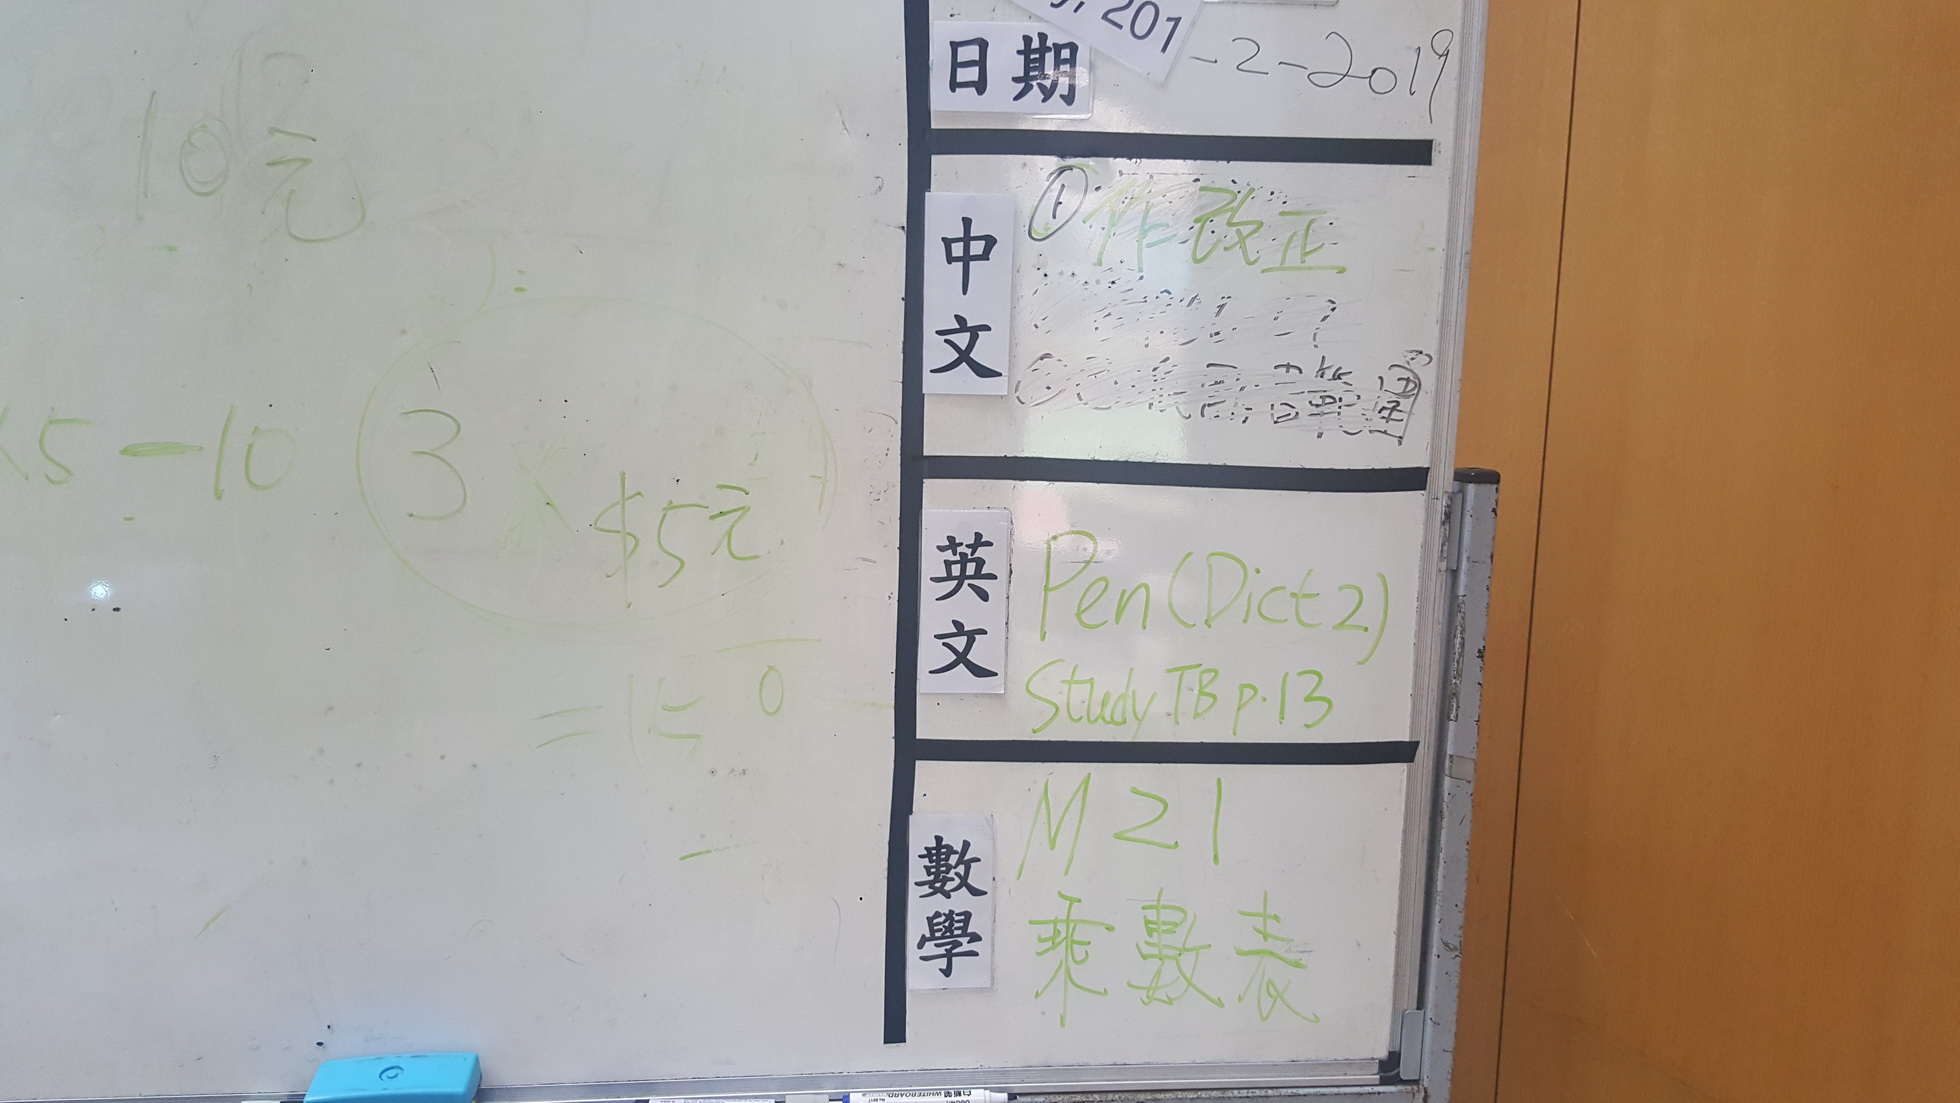 10元
5-10
3 × $5元
= 15
0
201
日期
-2-2019
中文
①作改正
英文
Pen(Dict 2)
Study TB p.13
數學
M 21
乘數表
WHITEBOARD